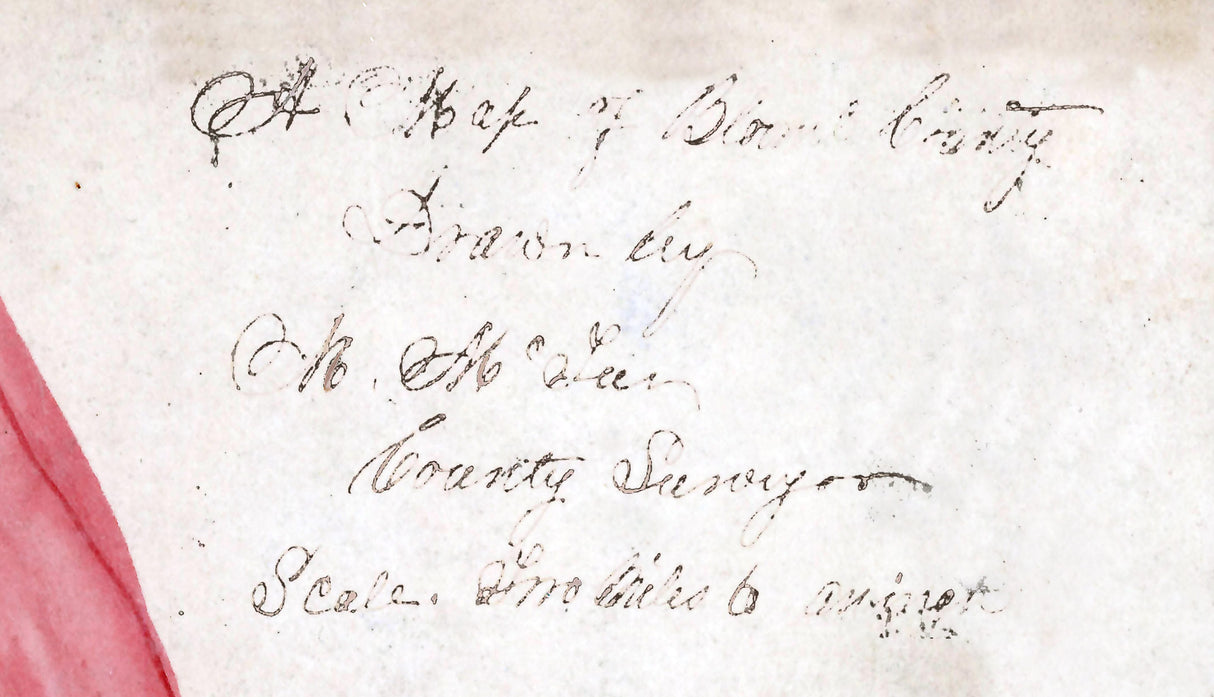 A Map of Blount County
Drawn by
M. McTeer
County Surveyor
Scale. Two Miles to an inch